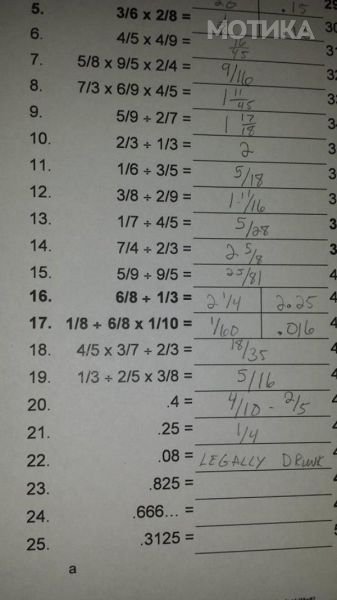 МОТИКА
5. 3/6 x 2/8 = .15 29
6. 4/5 x 4/9 = 16/45 30
7. 5/8 x 9/5 x 2/4 = 9/16 31
8. 7/3 x 6/9 x 4/5 = 1 11/45 32
9. 5/9 ÷ 2/7 = 1 17/18
10. 2/3 ÷ 1/3 = 2
11. 1/6 ÷ 3/5 = 5/18
12. 3/8 ÷ 2/9 = 1 11/16
13. 1/7 ÷ 4/5 = 5/28
14. 7/4 ÷ 2/3 = 2 5/8
15. 5/9 ÷ 9/5 = 25/81
16. 6/8 ÷ 1/3 = 2 1/4 2.25
17. 1/8 ÷ 6/8 x 1/10 = 1/60 .016
18. 4/5 x 3/7 ÷ 2/3 = 18/35
19. 1/3 ÷ 2/5 x 3/8 = 5/16
20. .4 = 4/10 - 2/5
21. .25 = 1/4
22. .08 = LEGALLY DRUNK
23. .825 =
24. .666... =
25. .3125 =
a